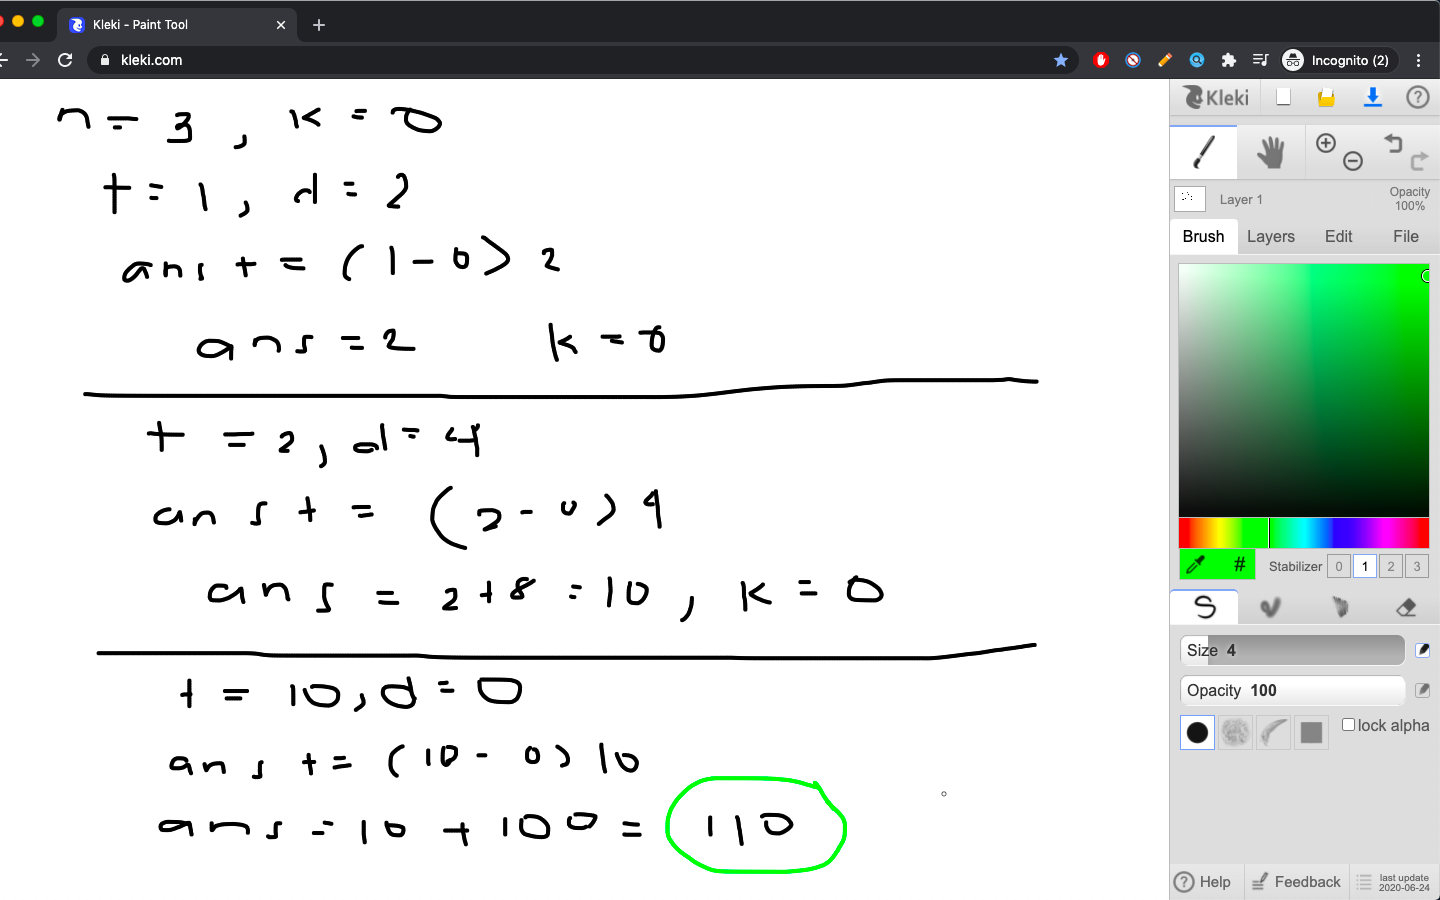 Kleki - Paint Tool
kleki.com
Incognito (2)
n = 3 , k = 0
t = 1 , d = 2
ans += (1 - 0) 2
ans = 2 k = 0
t = 2 , d = 4
ans += (2 - 0) 4
ans = 2 + 8 = 10 , k = 0
t = 10 , d = 0
ans += (10 - 0) 10
ans = 10 + 100 = 110
Kleki
Layer 1
Opacity
100%
Brush Layers Edit File
# Stabilizer 0 1 2 3
Size 4
Opacity 100
lock alpha
Help Feedback last update
2020-06-24